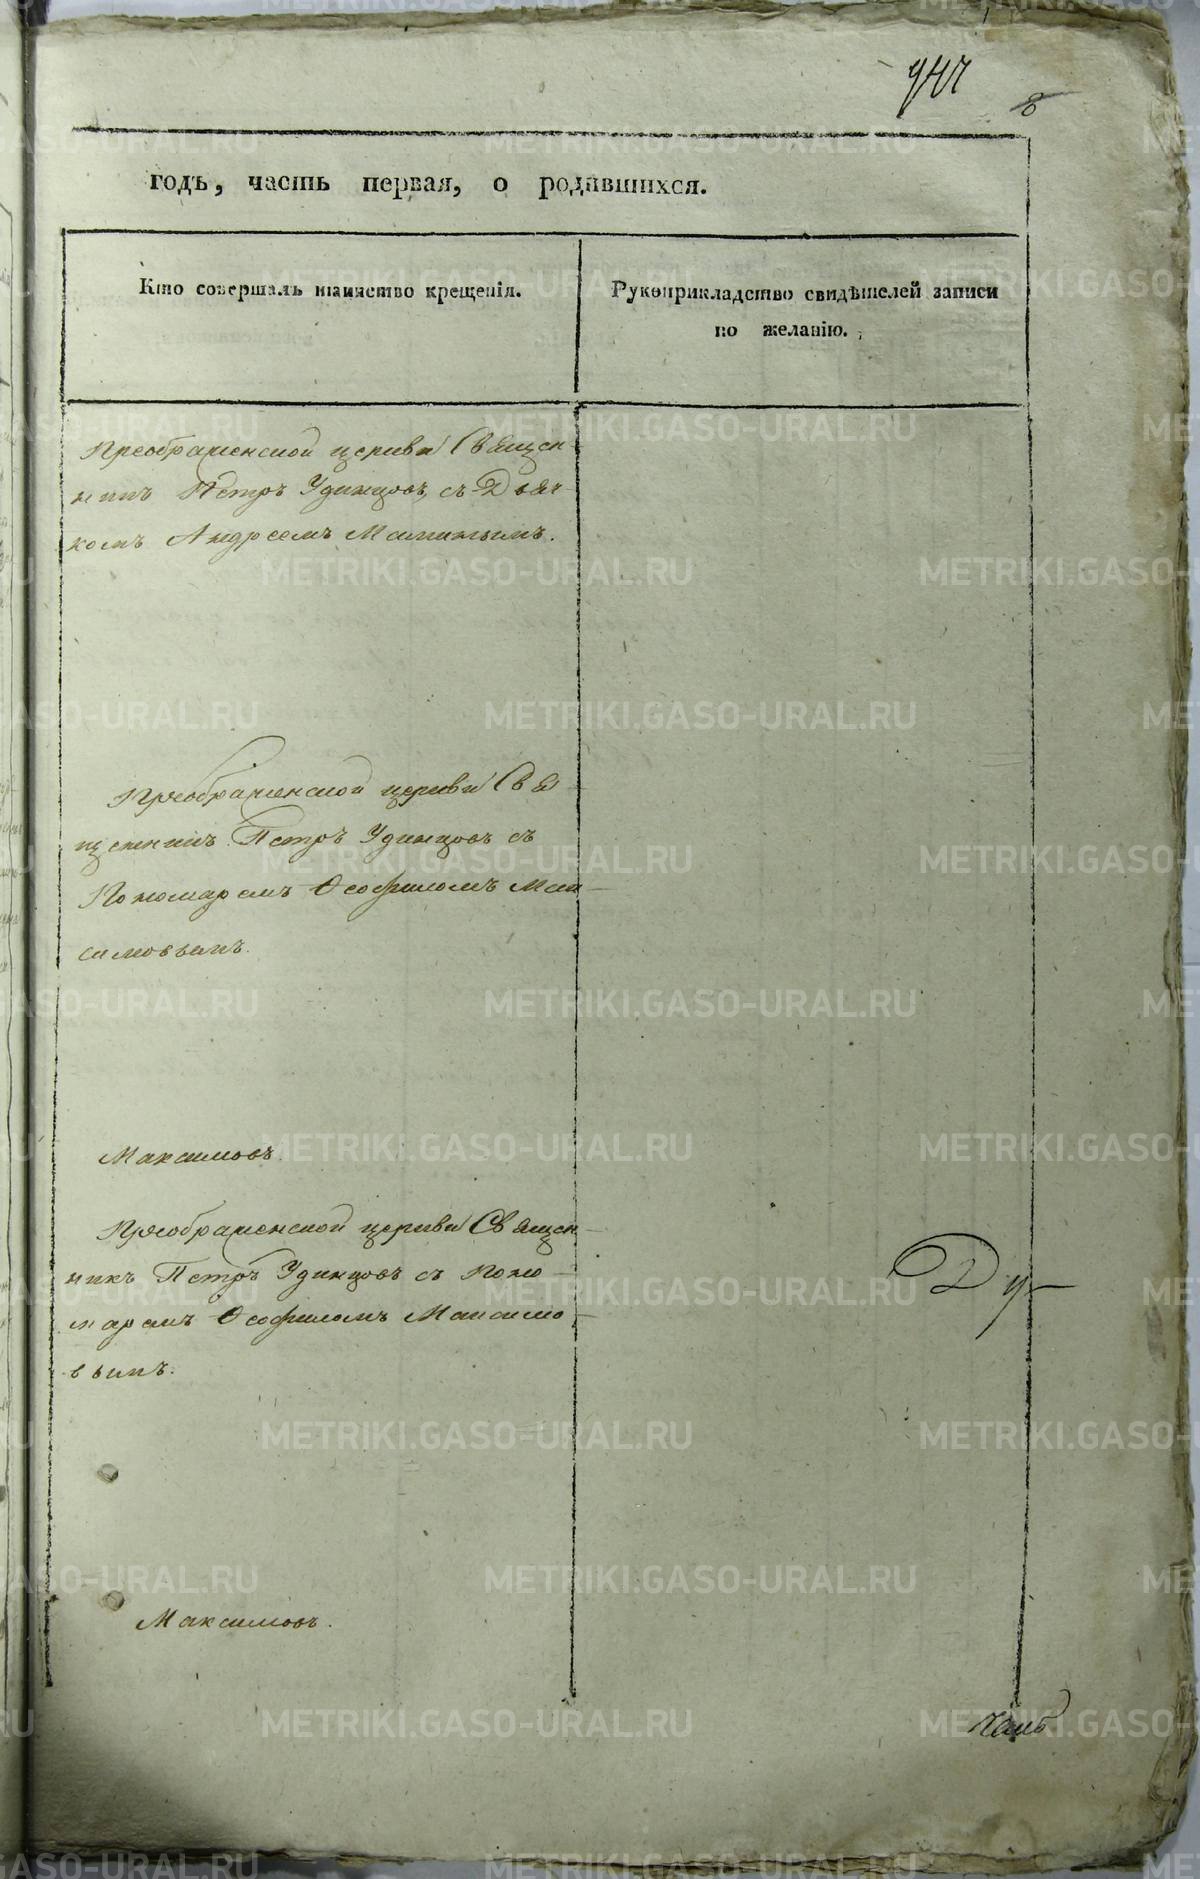 8
годъ, часть первая, о родившихся.
Кто совершалъ таинство крещенія.
Рукоприкладство свидѣтелей записи
по желанію.
Преображенской церкви Священ-
никъ Петръ Удинцовъ, съ Дьяч-
комъ Андреемъ Маминымъ.
Преображенской церкви Свя-
щенникъ Петръ Удинцовъ съ
Пономаремъ Ѳеофиломъ Мак-
симовымъ.
Максимовъ.
Преображенской церкви Священ-
никъ Петръ Удинцовъ съ Поно-
маремъ Ѳеофиломъ Максимо-
вымъ.
Ду-
Максимовъ.
METRIKI.GASO-URAL.RU